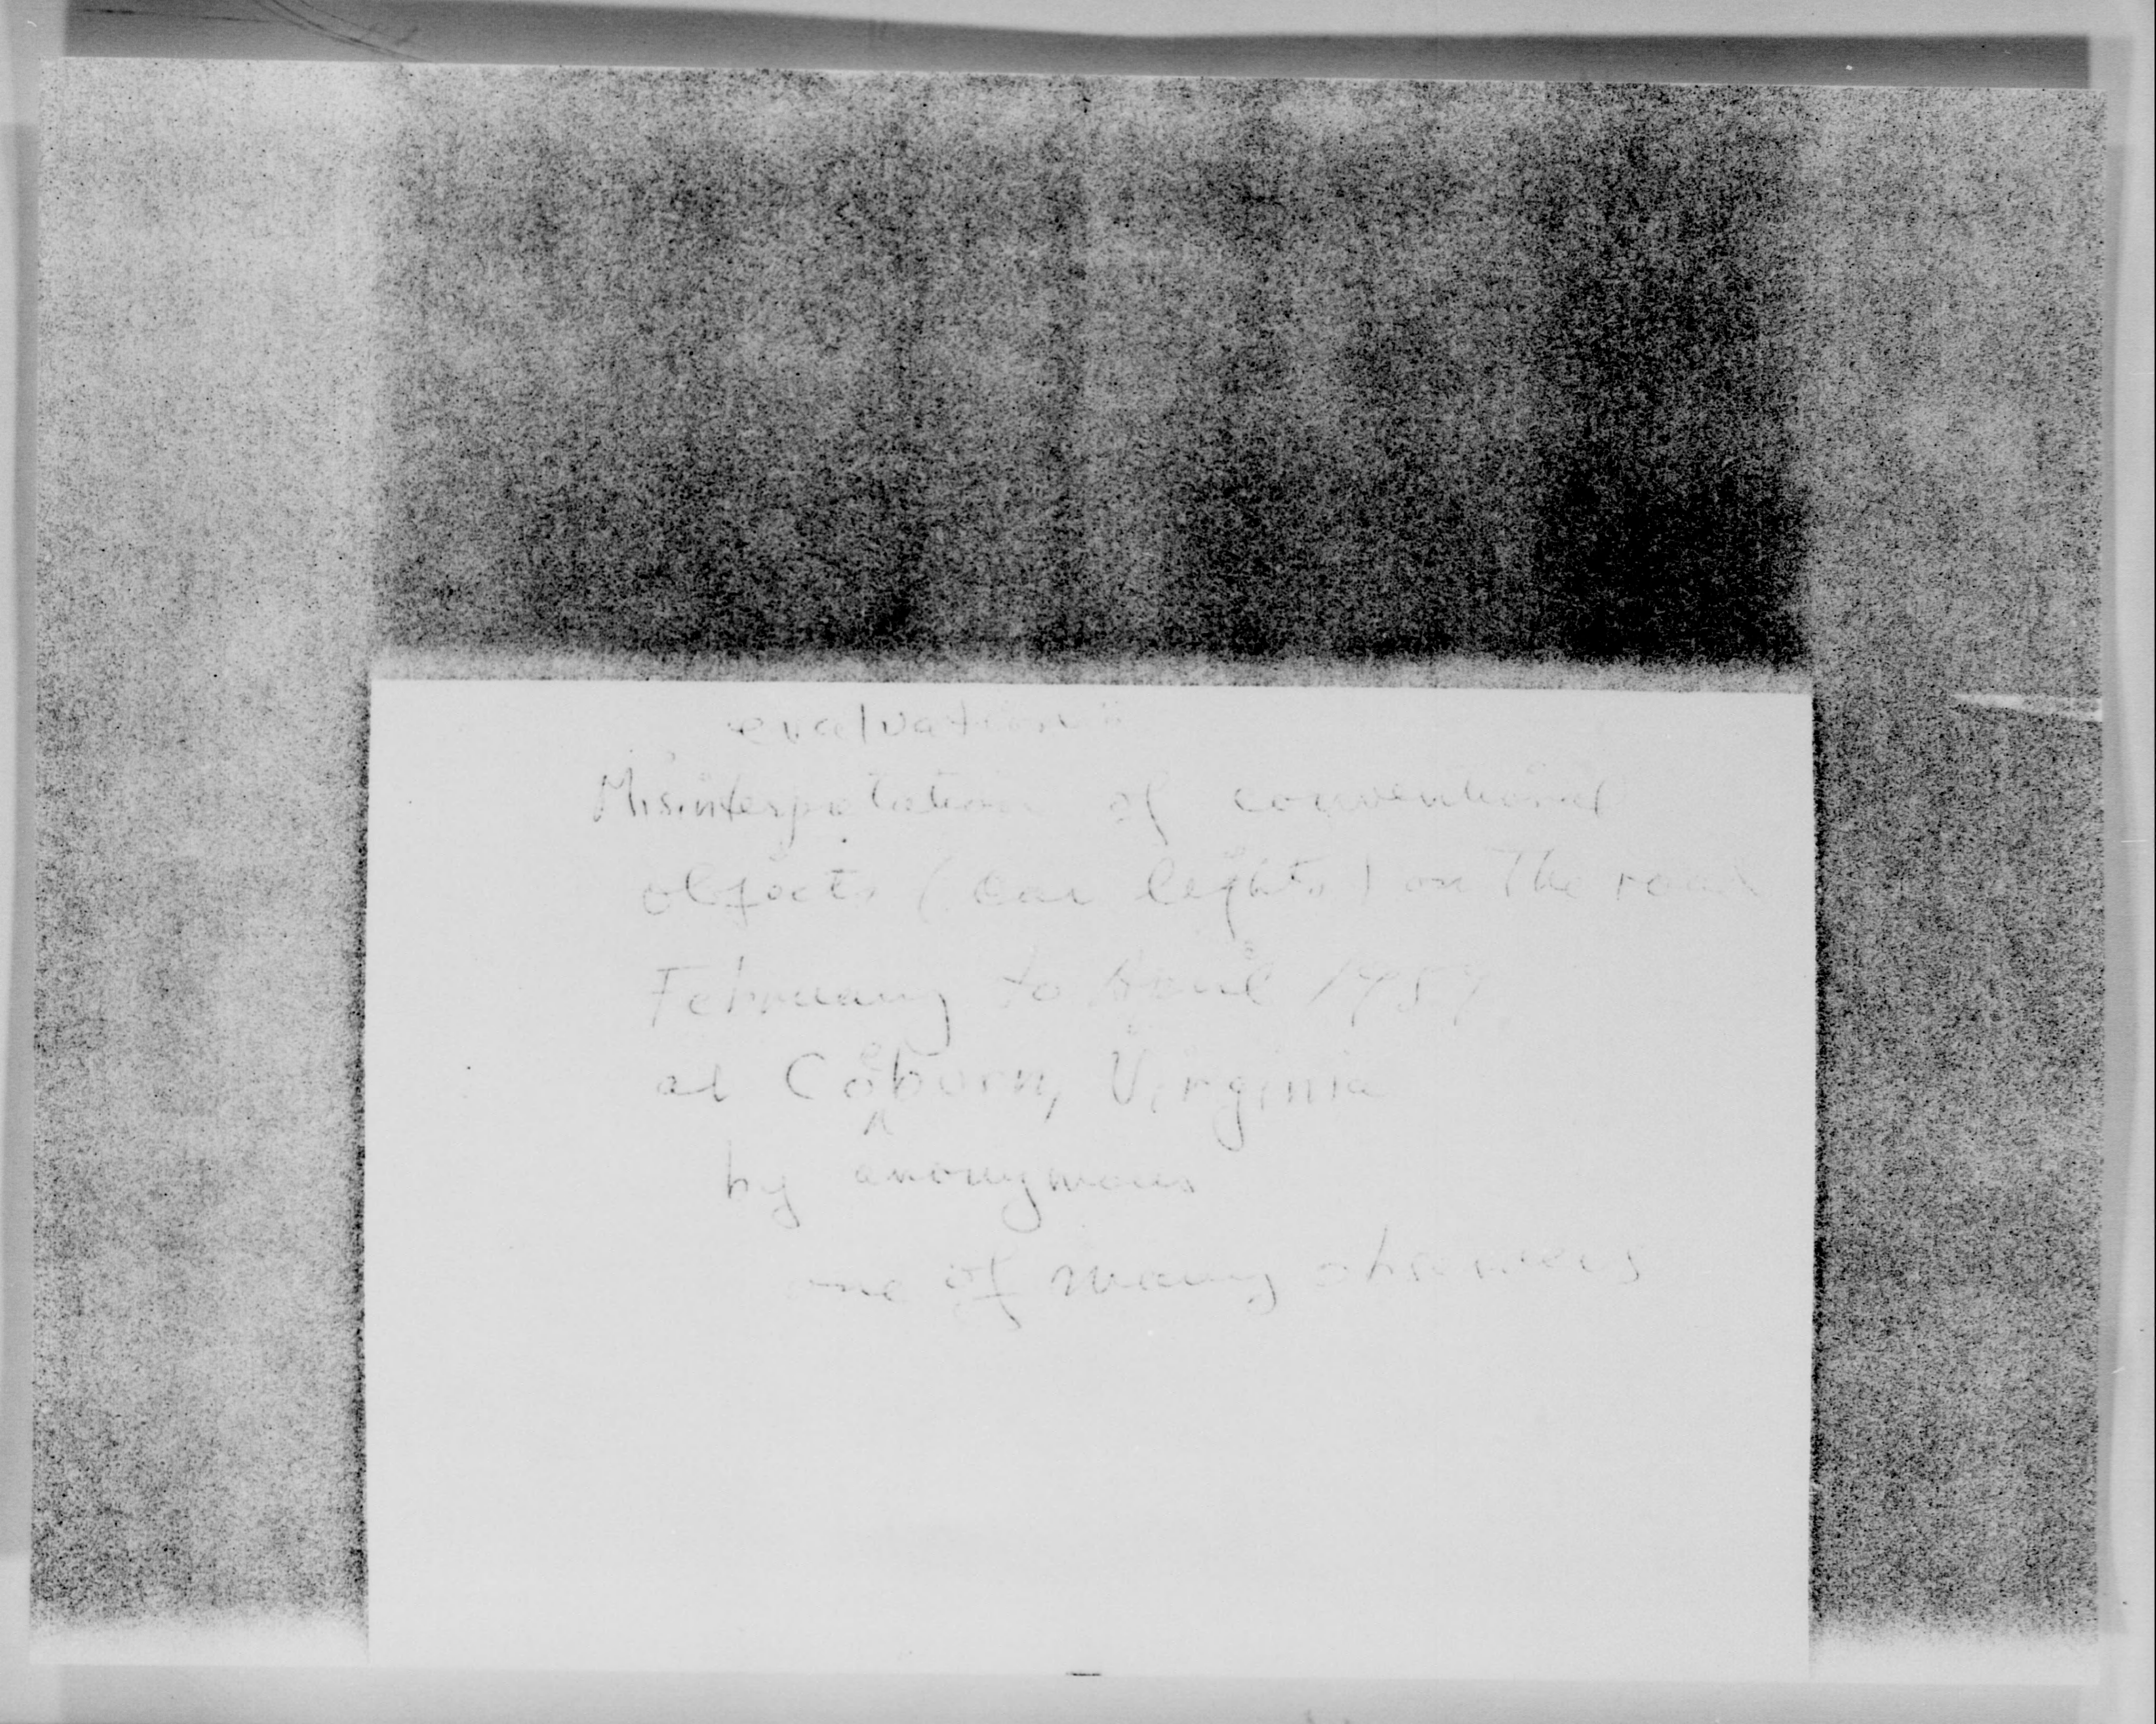 evaluation:
Misinterpretation of conventional
objects (car lights) on the road
February to April 1959
at Coeborn, Virginia
by anonymous
one of many observers